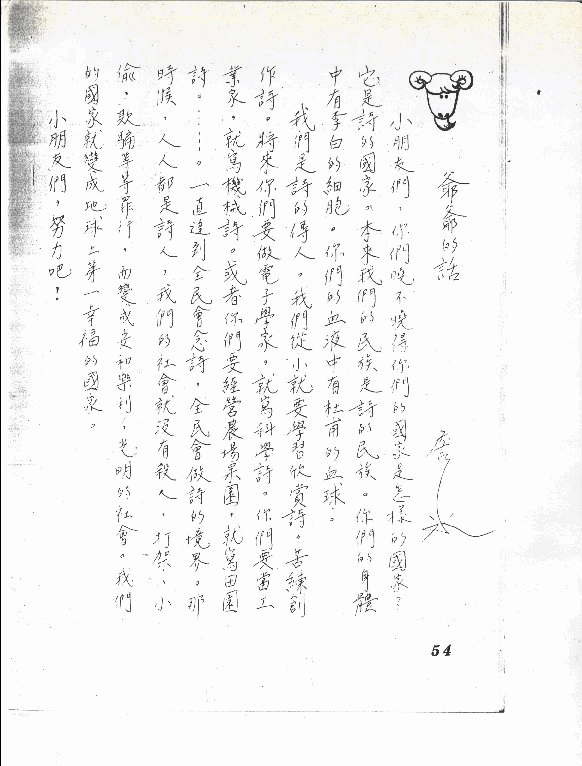 爺爺的話
小朋友們，你們曉不曉得你們的國家是怎樣的國家？
它是詩的國家。本來我們的民族是詩的民族。你們的身體
中有李白的細胞。你們的血液中有杜甫的血球。
我們是詩的傳人。我們從小就要學習欣賞詩。苦練創
作詩。將來你們要做電子學家。就寫科學詩。你們要當工
業家，就寫機械詩。或者你們要經營農場果園，就寫田園
詩。……。一直達到全民會念詩，全民會做詩的境界。那
時候，人人都是詩人，我們的社會就沒有殺人、打架、小
偷，欺騙等等罪行，而變成更和樂利，光明的社會。我們
的國家就變成地球上第一幸福的國家。
小朋友們，努力吧！
54